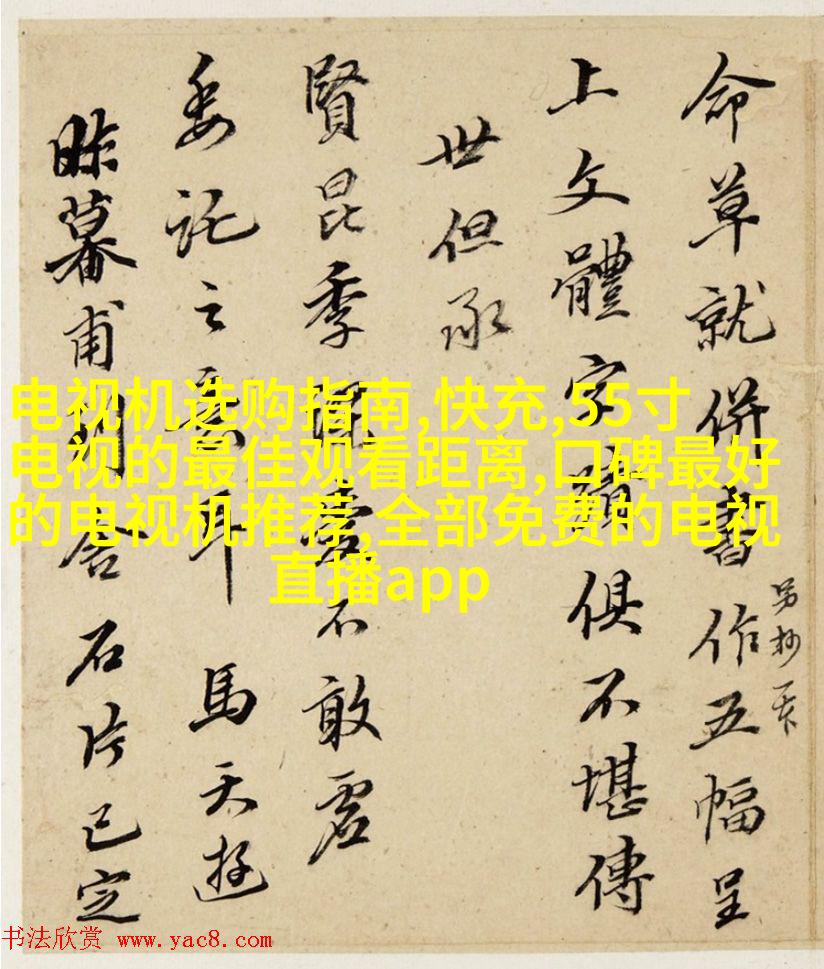 命草就併書作五幅呈
另抄
上文體字蹟俱不堪傳
世但承
賢昆季愛不敢虛
委託之意耳馬天游
昨暮甫合石片已定
电视机选购指南,快充,55寸
电视的最佳观看距离,口碑最好
的电视机推荐,全部免费的电视
直播app
书法欣赏 www.yac8.com